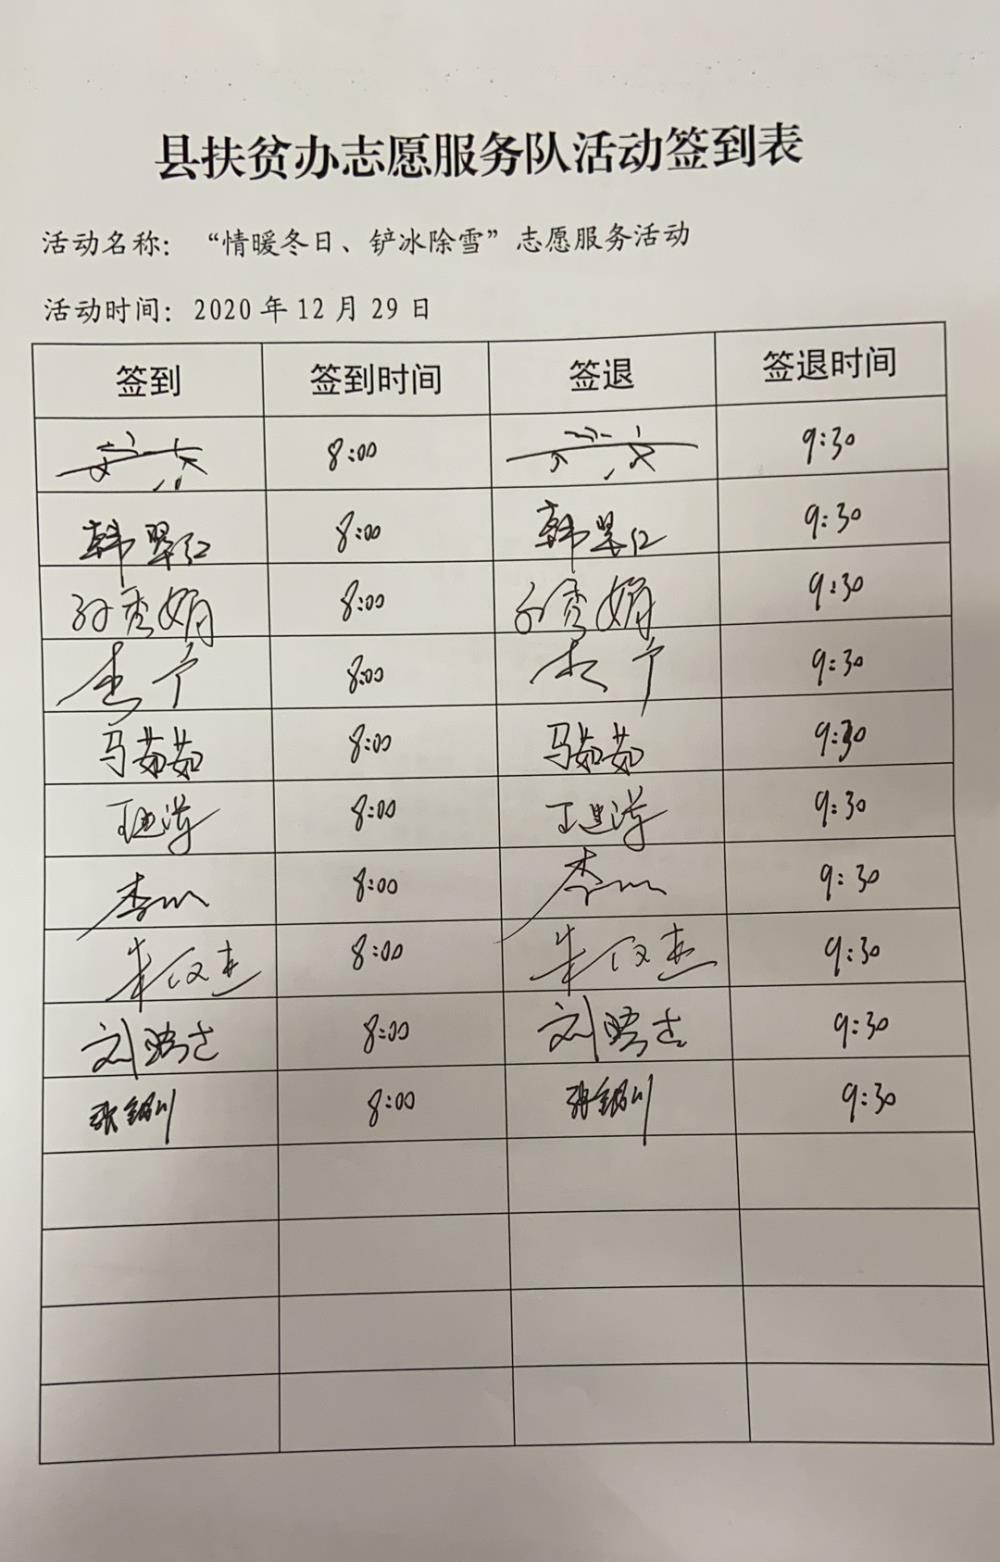 县扶贫办志愿服务队活动签到表
活动名称：“情暖冬日、铲冰除雪”志愿服务活动
活动时间：2020年12月29日
签到 签到时间 签退 签退时间
8:00 9:30
韩翠红 8:00 韩翠红 9:30
孙秀娟 8:00 孙秀娟 9:30
8:00 9:30
马茹茹 8:00 马茹茹 9:30
王迪 8:00 王迪 9:30
李 8:00 李 9:30
朱 8:00 朱 9:30
刘 8:00 刘 9:30
张 8:00 张 9:30